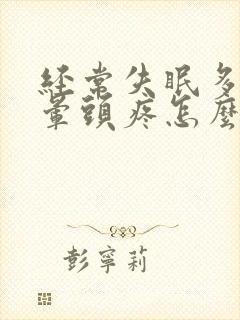 經常失眠多
暈頭疼怎麼
彭寧莉